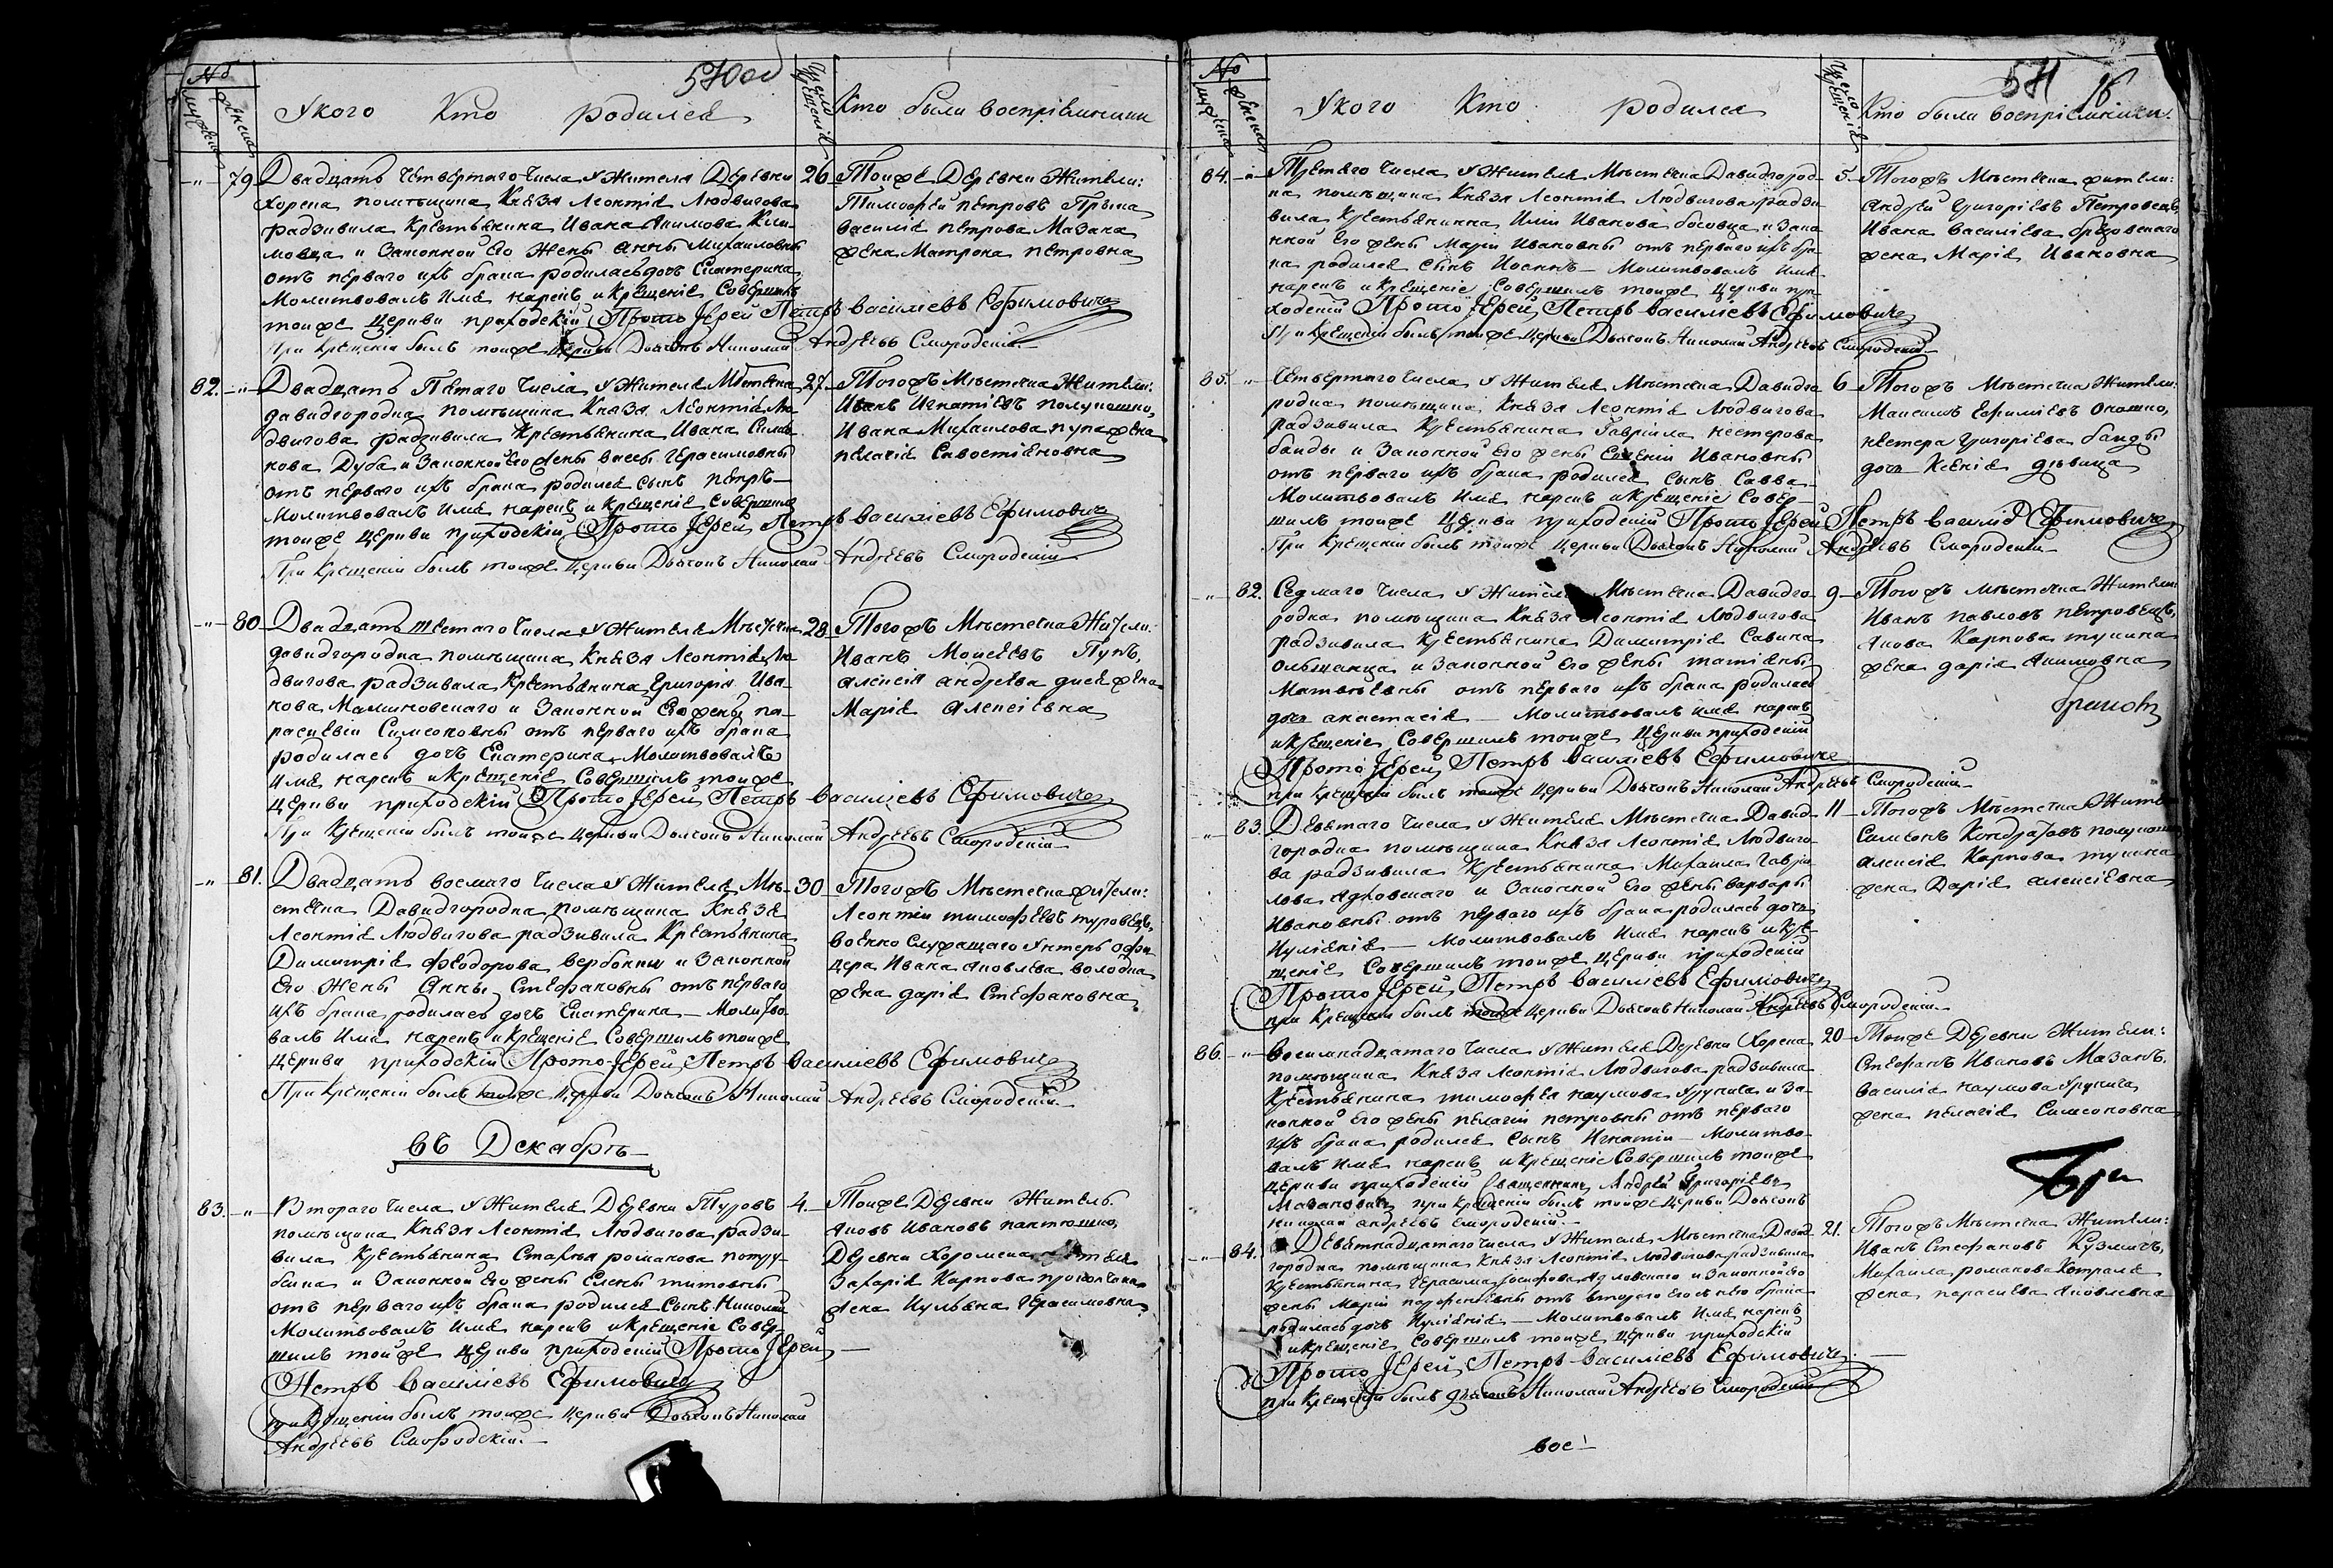 570 об
№
мужеска
женска
У кого Кто родился
Число Крещенія
Кто были воспріемники
-"- 79 Двадцать Четвертаго Числа у Жителя Деревни
Хорска помѣщика Князя Леонтія Людвигова
радзивила Крестьянина Ивана Акимова Кли-
мовца и Законной Его Жены Анны Михаиловны
отъ перваго ихъ брака родилась дочь Екатерина
Молитвовалъ Имя нарекъ и Крещеніе Совершилъ
тоиже Церкви приходскій Прото Іерей Петръ Василіевъ Ефимовичъ
При Крещеніи былъ тоиже Церкви Дьяконъ Николай Андреевъ Смородскій
26 Тоиже Деревни Жители:
Тимофей Петровъ Прыма
василія Петрова Мазана
жена Матрона Петровна
82. -"- Двадцать Пятаго Числа у Жителя Мѣстечка
давидгородка помѣщика Князя Леонтія Лю-
двигова радзивила Крестьянина Ивана Симо-
нова Дуба и Законной Его Жены вассы Герасимовны
отъ перваго ихъ брака родился сынъ Петръ
Молитвовалъ Имя нарекъ и Крещеніе Совершилъ
тоиже Церкви приходскій Прото Іерей Петръ Василіевъ Ефимовичъ
При Крещеніи былъ тоиже Церкви Дьяконъ Николай Андреевъ Смородскій
27 Тогожъ Мѣстечка Жители:
Иванъ Игнатіевъ полукошко,
Ивана Михаилова пупа жена
пелагія Савостіяновна
-"- 80 Двадцать шестаго Числа у Жителя Мѣстечка
давидгородка помѣщика Князя Леонтія Лю-
двигова радзивила Крестьянина Григорія Ива-
нова Малиновскаго и Законной Его жены па-
раскевіи Симеоновны отъ перваго ихъ брака
родилась дочь Екатерина Молитвовалъ
имя нарекъ и Крещеніе Совершилъ тоиже
Церкви приходскій Прото Іерей Петръ Василіевъ Ефимовичъ
При Крещеніи былъ тоиже Церкви Дьяконъ Николай Андреевъ Смородскій
28 Тогожъ Мѣстечка Жители:
Иванъ Моисеевъ Пупъ,
алексія андреева жена
Марія Алексіевна
-"- 81. Двадцать восмаго Числа у Жителя Мѣ-
стечка Давидгородка помѣщика Князя
Леонтія Людвигова радзивила Крестьянина
Димитрія Феодорова вербокия и Законной
Его Жены Анны Стефановны отъ перваго
ихъ брака родилась дочь Екатерина Молитво-
валъ Имя нарекъ и Крещеніе Совершилъ тоиже
Церкви приходскій Прото Іерей Петръ Василіевъ Ефимовичъ
При Крещеніи былъ тоиже Церкви Дьяконъ Николай Андреевъ Смородскій
30 Тогожъ Мѣстечка жители:
Леонтій тимофеевъ туровецъ,
военно Служащаго унтеръ офи-
цера Ивана Яковлева володка
жена дарія Стефановна
въ Декабрѣ
83. " Втораго Числа у Жителя Деревни Туровъ
помѣщика Князя Леонтія Людвигова радзи-
вила Крестьянина Стахія романова
и Законной Его жены Елены титовны
отъ перваго ихъ брака родился Сынъ Николай
Молитвовалъ Имя нарекъ и Крещеніе Совер-
шилъ тоиже Церкви приходскій Прото Іерей
Петръ Василіевъ Ефимовичъ
при Крещеніи былъ тоиже Церкви Дьяконъ Николай
Андреевъ Смородскій
4. Тоиже Деревни Житель
Яковъ Ивановъ пактюшко,
Деревни Хоромска жителя
Захарія Карпова
жена Иульяна Герасимовна
571 16
№
мужеска
женска
У кого Кто родился
Число Крещенія
Кто были воспріемники
84. -"- Третяго Числа у Жителя Мѣстечка Давидгород-
ка помѣщика Князя Леонтія Людвигова радзи-
вила Крестьянина Иліи Иванова босовца и Зако-
нной Его жены Маріи Ивановны отъ перваго ихъ бра-
ка родился сынъ Иоаннъ Молитвовалъ имя
нарекъ и Крещеніе Совершилъ тоиже Церкви при-
ходскій Прото Іерей Петръ Василіевъ Ефимовичъ
При Крещеніи былъ тоиже Церкви Дьяконъ Николай Андреевъ Смородскій
5. Тогожъ Мѣстечка жители:
Андрей Григоріевъ Петровецъ,
Ивана Василіева
жена Марія Ивановна
85. " Четвертаго Числа у Жителя Мѣстечка Давидго-
родка помѣщика Князя Леонтія Людвигова
радзивила Крестьянина Гавріила нестерова
банды и Законной Его жены Евгеніи Ивановны
отъ перваго ихъ брака родился сынъ Савва
Молитвовалъ Имя нарекъ и крещеніе Совер-
шилъ тоиже Церкви приходскій Прото Іерей Петръ Василіевъ Ефимовичъ
При Крещеніи былъ тоиже Церкви Дьяконъ Николай Андреевъ Смородскій
6 Тогожъ Мѣстечка Жители:
Максимъ Ефиміевъ Окошко,
нестера Григоріева банды
дочь Ксенія дѣвица
-"- 82. Седмаго Числа у Жителя Мѣстечка Давидго-
родка помѣщика Князя Леонтія Людвигова
радзивила Крестьянина Димитрія Савина
Ольшанца и Законной его жены татіяны
Матвѣевны отъ перваго ихъ брака родилась
дочь анастасія Молитвовалъ имя нарекъ
и крещеніе Совершилъ тоиже Церкви приходскій
Прото Іерей Петръ Василіевъ Ефимовичъ
при Крещеніи былъ тоиже Церкви Дьяконъ Николай Андреевъ Смородскій
9 Тогожъ Мѣстечка Жители
Иванъ павловъ петровецъ,
Якова Карпова тупика
жена дарія Акимовна
-"- 83. Девятаго Числа у Жителя Мѣстечка Давид-
городка помѣщика Князя Леонтія Людвиго-
ва радзивила Крестьянина Михаила Гаври-
лова Ядловскаго и Законной Его жены варвары
Ивановны отъ перваго ихъ брака родилась дочь
Иуліянія Молитвовалъ Имя нарекъ и Кре-
щеніе Совершилъ тоиже Церкви приходскій
Прото Іерей Петръ Василіевъ Ефимовичъ
при Крещеніи былъ тоиже Церкви Дьяконъ Николай Андреевъ Смородскій
11 Тогожъ Мѣстечка Жители
Симеонъ Кондратовъ полукошко
алексія Карпова тупика
жена Дарія алексіевна
86. " Восимнадцатаго Числа у Жителя Деревни Хорска
помѣщика Князя Леонтія Людвигова радзивила
Крестьянина тимофея наумова и За-
конной Его жены пелагіи петровны отъ перваго
ихъ брака родился Сынъ Игнатій Молитво-
валъ имя нарекъ и Крещеніе Совершилъ тоиже
Церкви приходскій Священникъ Андрей Григоріевъ
Мазановичъ при крещеніи былъ тоиже Церкви Дьяконъ
николай андреевъ смородскій
20 Тоиже Деревни Жители:
Стефанъ Ивановъ Мазанъ,
василія наумова
жена пелагія Симеоновна
-"- 84. Девятнадцатаго Числа у Жителя Мѣстечка Давид-
городка помѣщика Князя Леонтія Людвигова радзивила
Крестьянина Герасима Іосифова Ядловскаго и Законной Его
жены Маріи порфиріевны отъ втораго его съ нею брака
родилась дочь Иуліянія Молитвовалъ Имя нарекъ
и крещеніе Совершилъ тоиже Церкви приходскій
Прото Іерей Петръ Василіевъ Ефимовичъ
при Крещеніи былъ дьяконъ Николай Андреевъ Смородскій
21. Тогожъ Мѣстечка Жители:
Иванъ Стефановъ Кузмичъ,
Михаила романова Котраля
жена параскева Яковлевна
вос